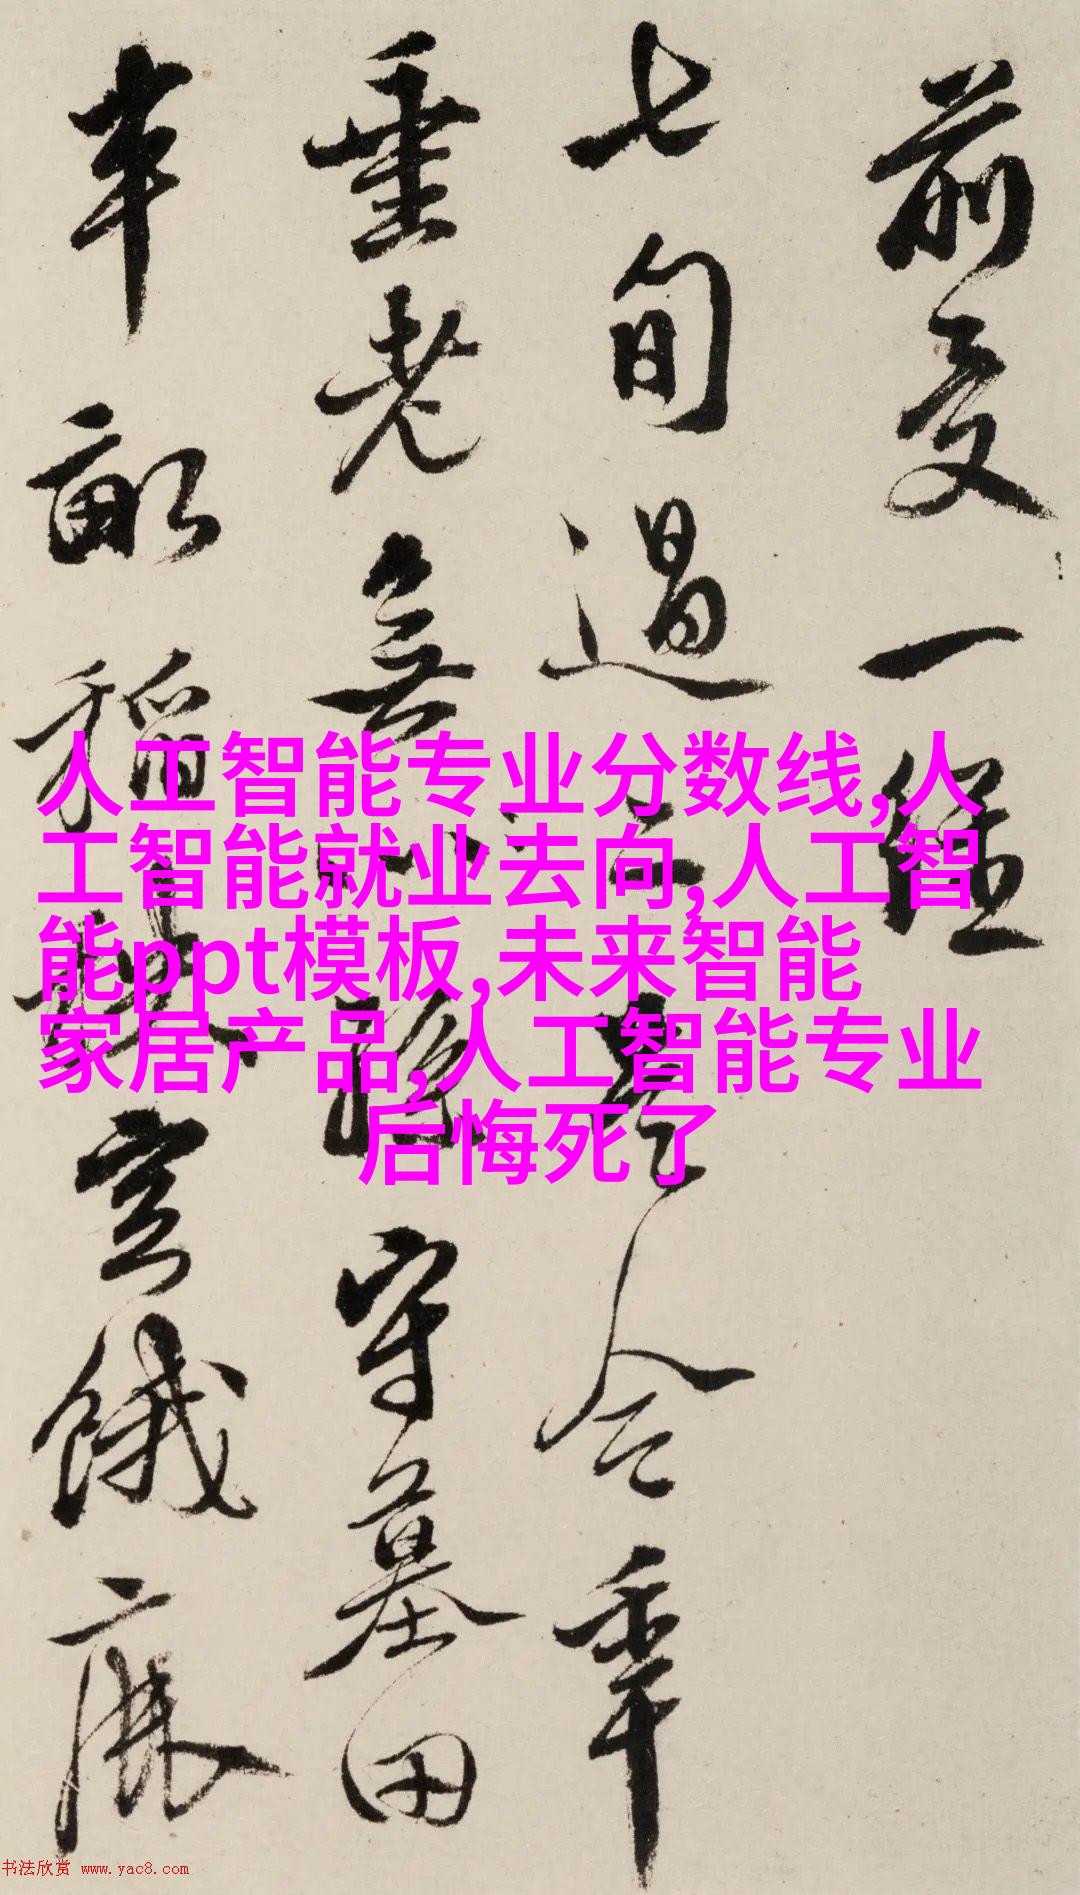 前受一
七旬過二是今年
垂老無孫守墓田
半畝稻
空餓
人工智能专业分数线,人
工智能就业去向,人工智
能ppt模板,未来智能
家居产品,人工智能专业
后悔死了
书法欣赏 www.yac8.com